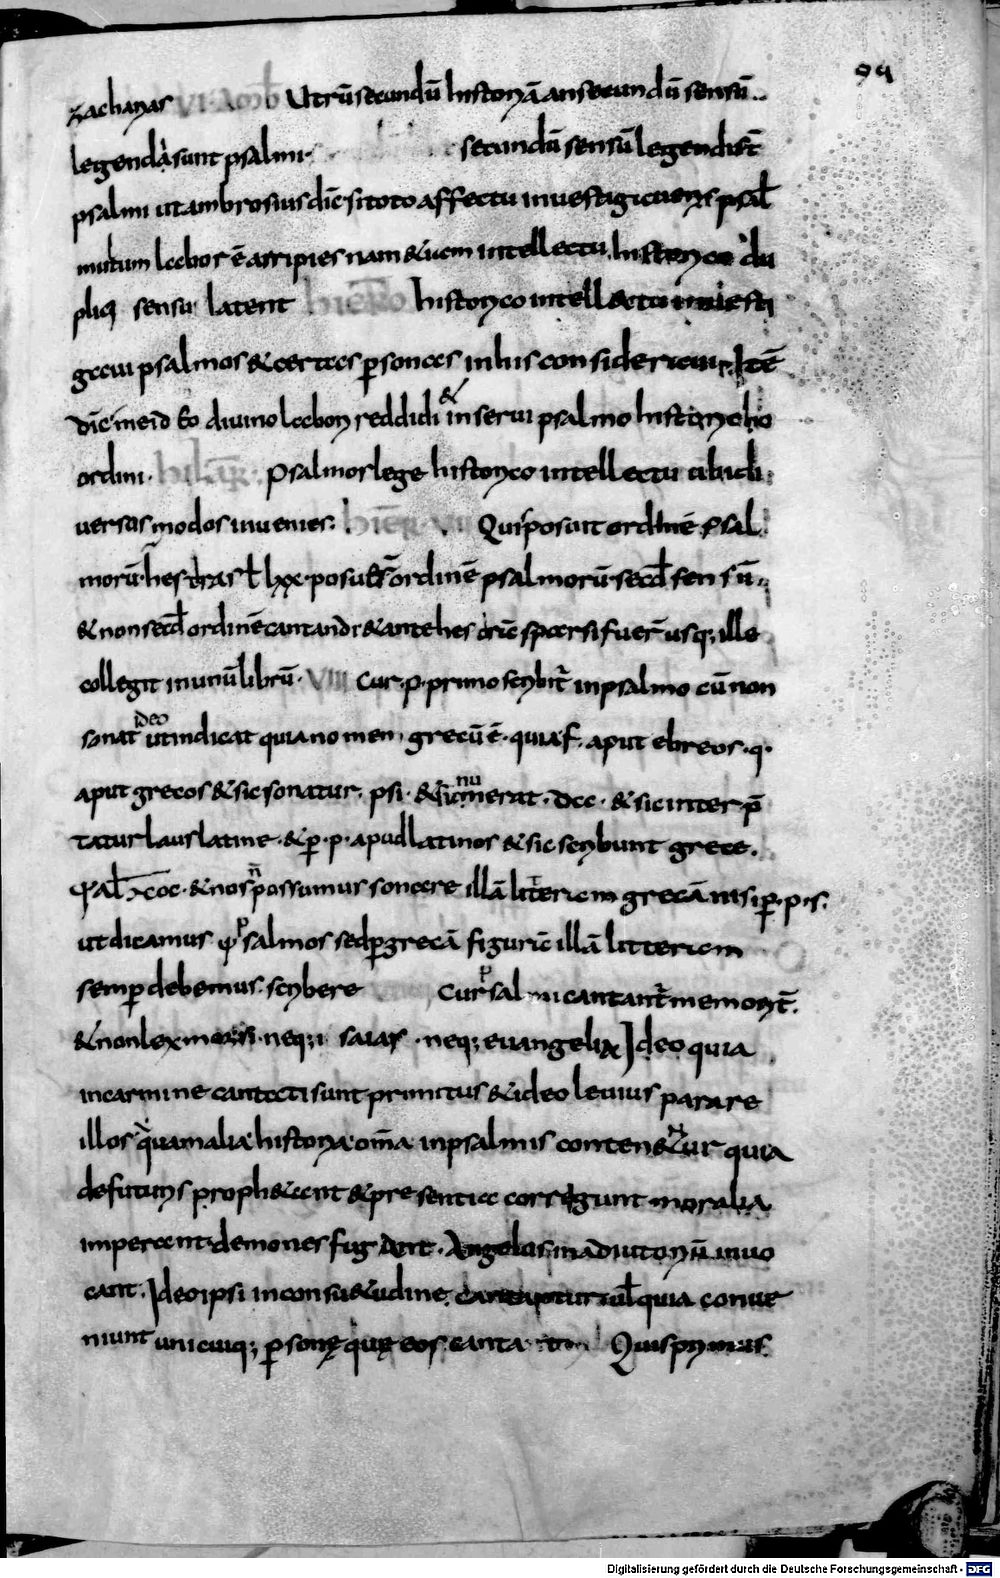 94
zacharias VI Amb Utrū secundū historiā an secundū sensū..
legenda sunt psalmi. secundū sensū legendi st̄
psalmi ut ambrosius dic̄ si toto affectu investigaveris psal̄
multum labor ē arripies nam & uem intellectu historico du
pliq; sensu latent hiero historico intellectu investi
gavi psalmos & certas ꝑsonas in his consideravi. Itē
dic̄ me id eo divino labori reddidi & inserui psalmo historicho
ordini. hilar. Psalmos lege historico intellectu ubi di
versus modos invenies. hier. VII Qui posuit ordinē psal
morū. hesdras ł lxx. posuer̄ ordinē psalmorū secd̄ sensū..
& non secd̄ ordinē cantandi & ante hesdrā sparsi fuer̄ usq; ille
collegit in unū librū. VIII Cur .p. primo scribit̄ in psalmo cū non
sonat ideo ut indicat quia nomen grecū ē. quia .f. aput ebreos .q.
aput grecos & sic sonatur. psi. & numerat. dcc. & sic inter p̄
tatur laus latine. & ꝑ .p. apud latinos & sic scribunt grece.
& nos possumus sonare illā litteram grecā nisi ꝑ .p.s.
ut dicamus psalmos sed ꝑ grecā figurā illā litteram
semꝑ debemus scribere Cur psalmi cantant̄ memorit̄.
& non lex moisi. neq; isaias. neq; evangelia Ideo quia
in carmine cantati sunt primitus & ideo levius parare
illos quam alia historia om̄a in psalmis contenentur quia
de futuris prophetant & presentia corregunt moralia
imperant demones fugant. Angelos in adiutoriū invo
cant. Ideo ipsi in consuetudine cantantur vel quia conve
niunt unicuiq; ꝑsonę quę eos canta Quis primus
Digitalisierung gefördert durch die Deutsche Forschungsgemeinschaft - DFG